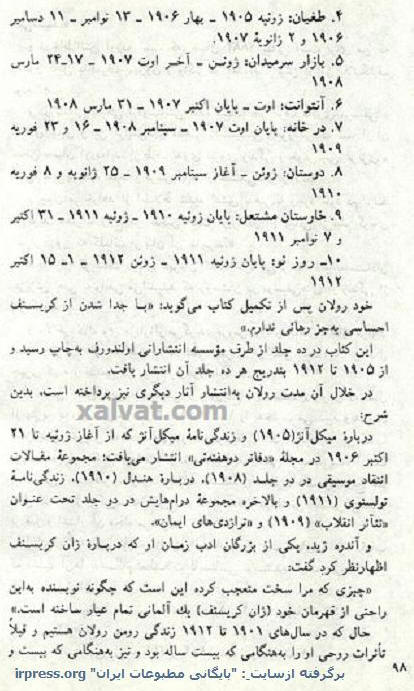 ۴. طغیان: ژوئیه ۱۹۰۵ ـ بهار ۱۹۰۶ ـ ۱۳ نوامبر ـ ۱۱ دسامبر
۱۹۰۶ و ۲ ژانویهٔ ۱۹۰۷.
۵. بازار سرمیدان: ژوئن ـ آخر اوت ۱۹۰۷ ـ ۱۷ـ۲۴ مارس
۱۹۰۸
۶. آنتوانت: اوت ـ پایان اکتبر ۱۹۰۷ ـ ۳۱ مارس ۱۹۰۸
۷. در خانه: پایان اوت ۱۹۰۷ ـ سپتامبر ۱۹۰۸ ـ ۱۶ و ۲۳ فوریه
۱۹۰۹
۸. دوستان: ژوئن ـ آغاز سپتامبر ۱۹۰۹ ـ ۲۵ ژانویه و ۸ فوریه
۱۹۱۰
۹. خارستان مشتعل: پایان ژوئیه ۱۹۱۰ ـ ژوئیه ۱۹۱۱ ـ ۳۱ اکتبر
و ۷ نوامبر ۱۹۱۱
۱۰ـ روز نو: پایان ژوئیه ۱۹۱۱ ـ ژوئن ۱۹۱۲ ـ ۱ـ ۱۵ اکتبر
۱۹۱۲
خود رولان پس از تکمیل کتاب می‌گوید: «با جدا شدن از کریستف
احساسی به‌جز رهائی ندارم.»
این کتاب در ده جلد از طرف مؤسسه انتشاراتی اولندورف به‌چاپ رسید و
از ۱۹۰۵ تا ۱۹۱۲ بتدریج هر ده جلد آن انتشار یافت.
در خلال آن مدت رولان به‌انتشار آثار دیگری نیز پرداخته است، بدین
شرح:
xalvat.com
دربارهٔ میکل‌آنژ(۱۹۰۵) و زندگی‌نامهٔ میکل‌آنژ که از آغاز ژوئیه تا ۲۱
اکتبر ۱۹۰۶ در مجلهٔ «دفاتر دوهفته‌ئی» انتشار می‌یافت؛ مجموعهٔ مقالات
انتقاد موسیقی در دو جلد (۱۹۰۸)، دربارهٔ هندل (۱۹۱۰)، زندگی‌نامهٔ
تولستوی (۱۹۱۱) و بالاخره مجموعهٔ درام‌هایش در دو جلد تحت عنوان
«تئاتر انقلاب» (۱۹۰۹) و «تراژدی‌های ایمان».
و آندره ژید، یکی از بزرگان ادب زمان او که دربارهٔ ژان کریستف
اظهارنظر کرد گفت:
«چیزی که مرا سخت متعجب کرده این است که چگونه نویسنده به‌این
راحتی از قهرمان خود (ژان کریستف) یك آلمانی تمام عیار ساخته است.»
حال که در سال‌های ۱۹۰۱ تا ۱۹۱۲ زندگی رومن رولان هستیم و قبلاً
تأثرات روحی او را به‌هنگامی که بیست ساله بود و نیز به‌هنگامی که بیست و
۹۸
برگرفته ازسایت: "بایگانی مطبوعات ایران" irpress.org